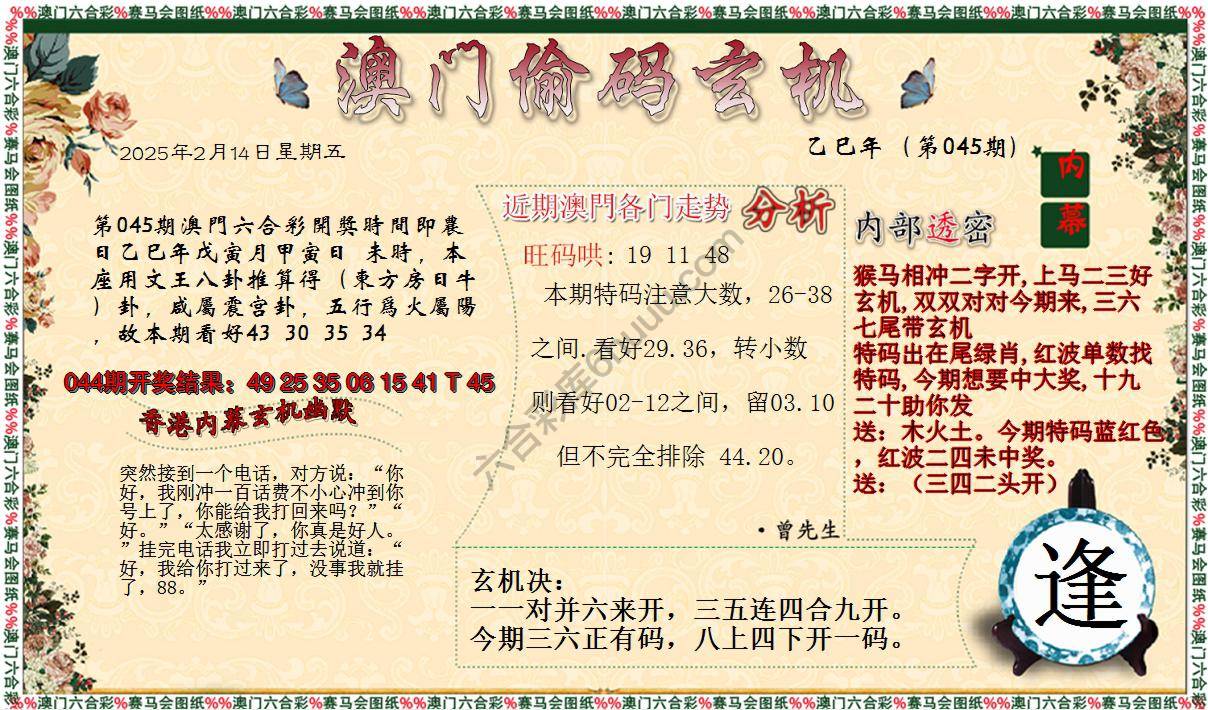 %%澳门六合彩%赛马会图纸%%澳门六合彩%赛马会图纸%%澳门六合彩%赛马会图纸%%澳门六合彩%赛马会图纸%%澳门六合彩%赛马会图纸%%澳门六合彩%赛马会图纸%%
澳门偷码玄机
2025年2月14日星期五
乙巳年（第045期）
内幕
第045期澳門六合彩開獎時間即農
日乙巳年戊寅月甲寅日 未時，本
座用文王八卦推算得（東方房日牛
）卦，咸屬震宫卦，五行爲火屬陽
，故本期看好43 30 35 34
044期开奖结果：49 25 35 06 15 41 T 45
香港内幕玄机幽默
突然接到一个电话，对方说：“你
好，我刚冲一百话费不小心冲到你
号上了，你能给我打回来吗？”“
好。”“太感谢了，你真是好人。
”挂完电话我立即打过去说道：“
好，我给你打过来了，没事我就挂
了，88。”
近期澳門各门走势 分析
旺码哄: 19 11 48
本期特码注意大数，26-38
之间.看好29.36，转小数
则看好02-12之间，留03.10
但不完全排除 44.20。
·曾先生
内部透密
猴马相冲二字开,上马二三好
玄机,双双对对今期来,三六
七尾带玄机
特码出在尾绿肖,红波单数找
特码,今期想要中大奖,十九
二十助你发
送：木火土。今期特码蓝红色
，红波二四未中奖。
送：（三四二头开）
玄机决：
一一对并六来开，三五连四合九开。
今期三六正有码，八上四下开一码。
逢
%%澳门六合彩%赛马会图纸%%澳门六合彩%赛马会图纸%%澳门六合彩%赛马会图纸%%澳门六合彩%赛马会图纸%%澳门六合彩%赛马会图纸%%澳门六合彩%赛马会图纸%%